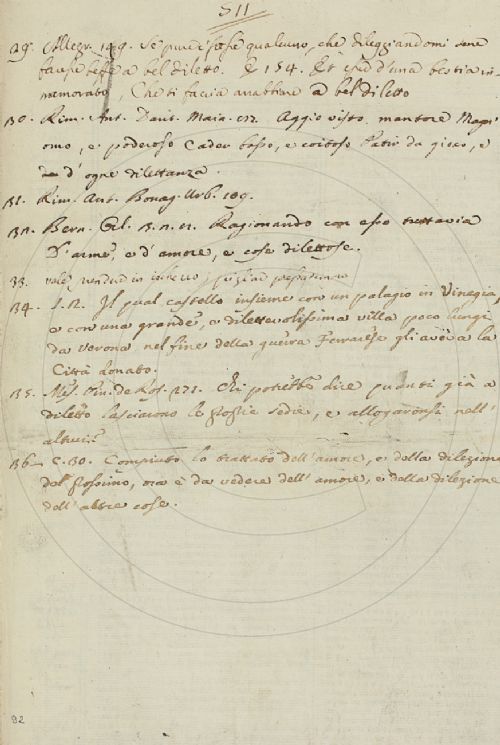 511
29. Allegr. 149. Se pure fosse qualcuno, che dileggiandomi sene
facesse beffe a bel diletto. E 154. Et sed d'una bestia in
memorabo, Che ti faccia anabbiare a bel diletto
30. Rim. Ant. Dant. Maia. 72. Aggio visto mantore Magn
omo, e poderoso Cader basso, e coitoso Patir da gioco, e
d'ogne dilettanza.
31. Rim. Ant. Bonag. Urb. 109.
32. Bern. Orl. 3. Ragionando con esso tuttavia
D'arme, e d'amore, e cose dilettose.
33. vale
34. S. R. Il qual castello insieme con un palagio in Vinegia
e con una grande, e dilettevolissima villa poco lungi
da Verona nel fine della guerra Ferrarese gli aveva la
Città donato.
35. Mes. Cin. 171. Chi potrebbe dire quanti già a
diletto lasciarono le proprie sedie, e allogaronsi nell'
altrui?
36. C. 30. Compiuto lo trattato dell'amore, e della dilezione
del prossimo, ora è da vedere dell'amore, e della dilezione
dell'altre cose.
92